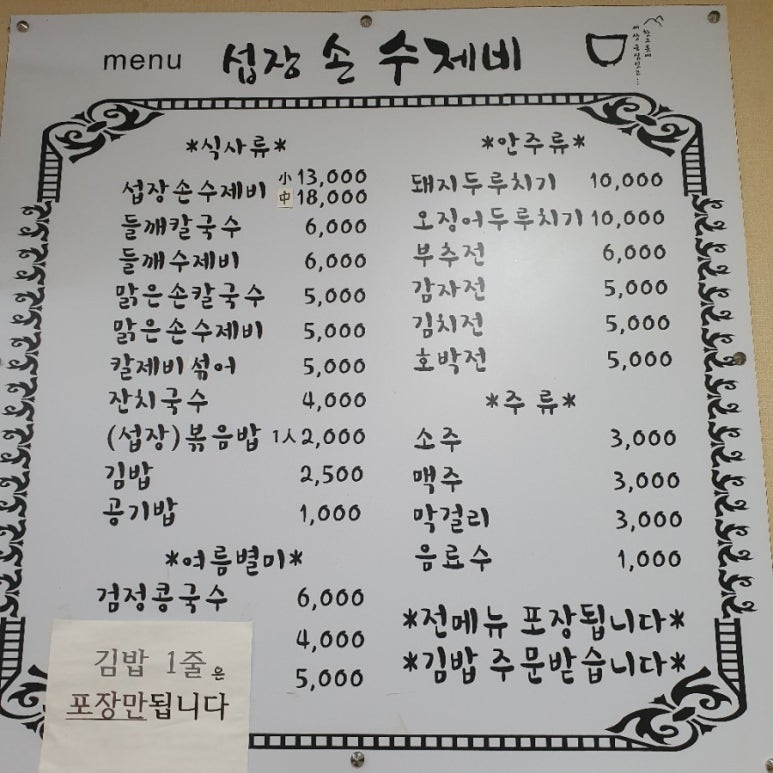 menu 섭장 손 수제비
*식사류*
섭장손수제비 小 13,000
中 18,000
들깨칼국수 6,000
들깨수제비 6,000
맑은손칼국수 5,000
맑은손수제비 5,000
칼제비섞어 5,000
잔치국수 4,000
(섭장)볶음밥 1人 2,000
김밥 2,500
공기밥 1,000
*여름별미*
검정콩국수 6,000
4,000
5,000
김밥 1줄은
포장만됩니다
*안주류*
돼지두루치기 10,000
오징어두루치기 10,000
부추전 6,000
감자전 5,000
김치전 5,000
호박전 5,000
*주류*
소주 3,000
맥주 3,000
막걸리 3,000
음료수 1,000
*전메뉴 포장됩니다*
*김밥 주문받습니다*